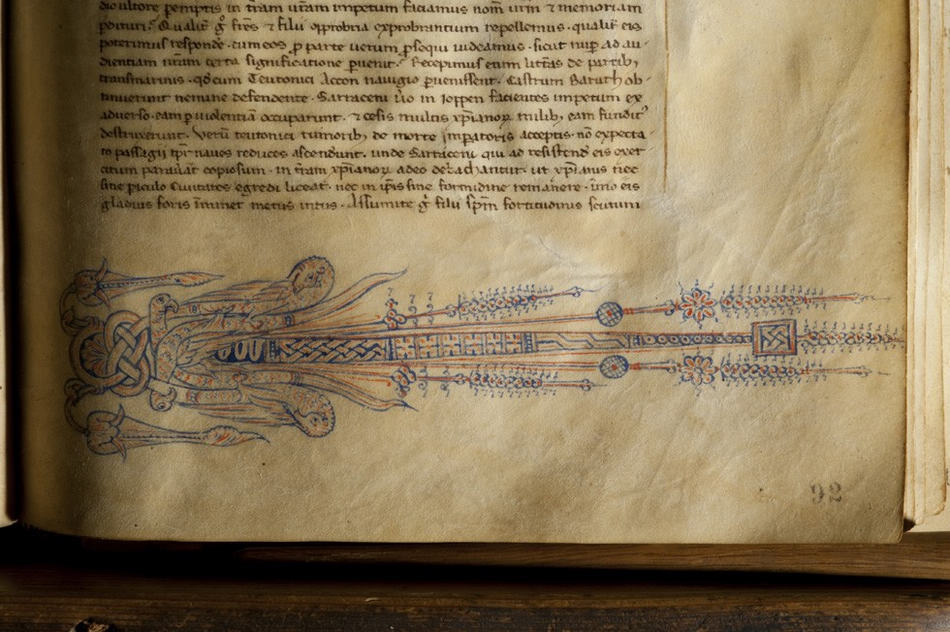 dio ultore pemptis in tram uram impetum faciamus nom urm ⁊ memoriam
perituri. Qualit͛ gͦ fr̄es ⁊ filii opprobria exprobrantium repellemus. qualit͛ eis
poterimus respondē. cum eos ꝓ parte uerum ꝓsequi uideamus. sicut nup̄ ad au-
dientiam nr̄am certa significatione puenit. Recepimus enim litt̄as de partib;
transmarinis. qđ cum Teutonici Accon nauigio puenissent. Castrum Baruth ob-
tinuerunt nemine defendente. Sarraceni ũo in Joppen facientes impetum ex
aduerso. eam p uiolentiā occuparunt. ⁊ cesis multis xp̄ianoꝝ milib; eam fundit͛
destruxerunt. Verū teutonici rumorib; de morte Impatoris acceptis. nō expecta-
to passagii tp̄r naues reduces ascendunt. unde Sarraceni qui ad resistend͛ eis exer
citum parauāt copiosum. in tr̄am xp̄ianoꝝ adeo debachantur. ut xp̄ianis nec
sine piculo Ciuitates egredi liceat. nec in ip̄is sine formidine remanere. imo eis
gladius foris īminet metus intus. Assumite gͦ filii sp̄m fortitudinis scutum
92